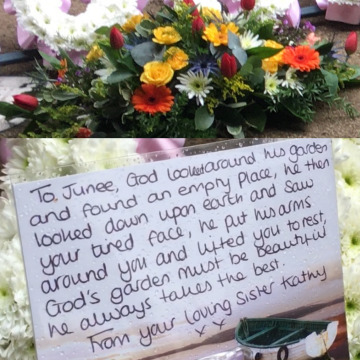 To, Junee, God looked around his garden
and found an empty Place, he then
looked down upon earth and Saw
your tired face, he put his arms
around you and lifted you to rest,
God's garden must be Beautiful
he always takes the best.
From your loving Sister Kathy
x x